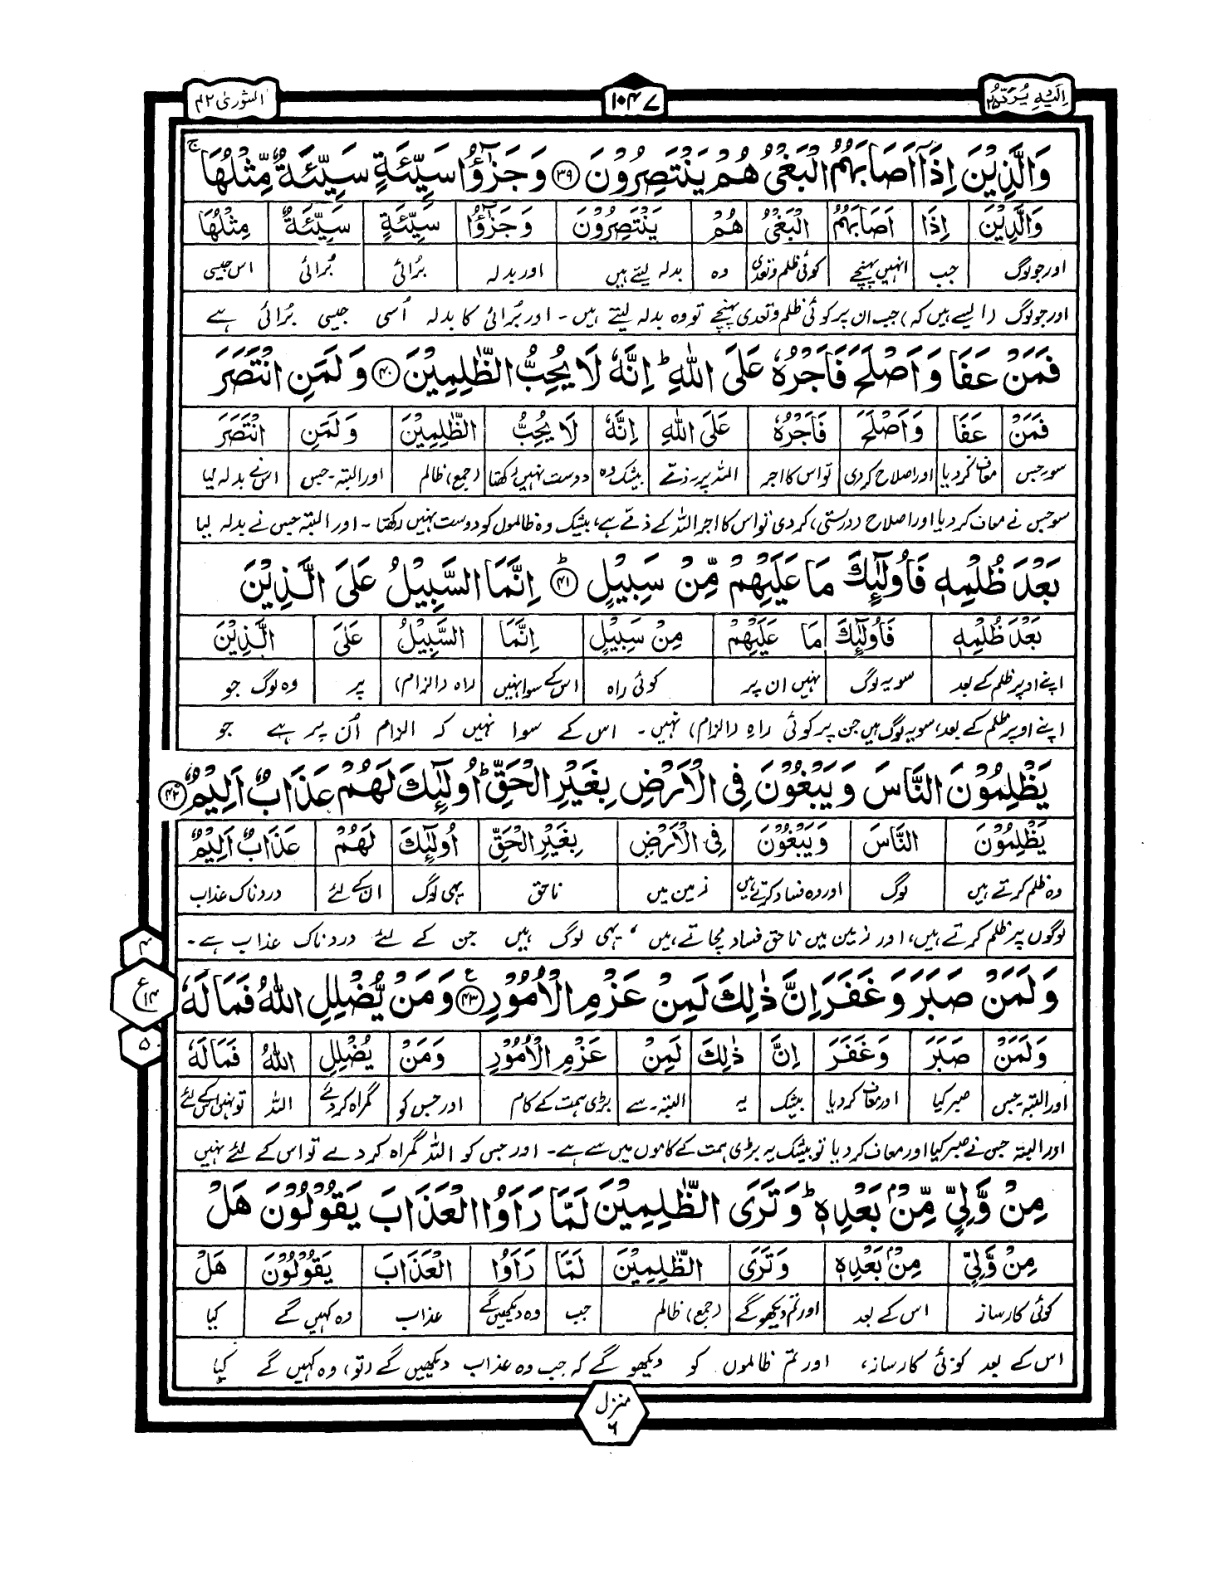 اِلَیْهِ یُرَدُّ ۲۵
۱۰۴۷
الشوریٰ ۴۲
وَالَّذِيْنَ اِذَآ اَصَابَهُمُ الْبَغْىُ هُمْ يَنْتَصِرُوْنَ ﴿۳۹﴾ وَ جَزٰٓؤُا سَيِّئَةٍ سَيِّئَةٌ مِّثْلُهَا ۚ
وَالَّذِيْنَ اِذَا اَصَابَهُمُ الْبَغْىُ هُمْ يَنْتَصِرُوْنَ وَ جَزٰٓؤُا سَيِّئَةٍ سَيِّئَةٌ مِثْلُهَا
اور جو لوگ جب انہیں پہنچے کوئی ظلم و تعدی وہ بدلہ لیتے ہیں اور بدلہ بُرائی بُرائی اس جیسی
اور جو لوگ (ایسے ہیں کہ) جب ان پر کوئی ظلم و تعدی پہنچے تو وہ بدلہ لیتے ہیں۔ اور بُرائی کا بدلہ اُسی جیسی بُرائی ہے
فَمَنْ عَفَا وَ اَصْلَحَ فَاَجْرُهٗ عَلَى اللّٰهِ ؕ اِنَّهٗ لَا يُحِبُّ الظّٰلِمِيْنَ ﴿۴۰﴾ وَ لَمَنِ انْتَصَرَ
فَمَنْ عَفَا وَ اَصْلَحَ فَاَجْرُهٗ عَلَى اللّٰهِ اِنَّهٗ لَا يُحِبُّ الظّٰلِمِيْنَ وَ لَمَنِ انْتَصَرَ
سو جس معاف کر دیا اور اصلاح کر دی تو اس کا اجر اللہ پر۔ ذمے بیشک وہ دوست نہیں رکھتا (جمع) ظالم اور البتہ۔ جس اس نے بدلہ لیا
سو جس نے معاف کر دیا اور اصلاح (درستی) کر دی تو اس کا اجر اللہ کے ذمے ہے، بیشک وہ ظالموں کو دوست نہیں رکھتا۔ اور البتہ جس نے بدلہ لیا
بَعْدَ ظُلْمِهٖ فَاُولٰٓئِكَ مَا عَلَيْهِمْ مِّنْ سَبِيْلٍ ﴿۴۱﴾ؕ اِنَّمَا السَّبِيْلُ عَلَى الَّذِيْنَ
بَعْدَ ظُلْمِهٖ فَاُولٰٓئِكَ مَا عَلَيْهِمْ مِنْ سَبِيْلٍ اِنَّمَا السَّبِيْلُ عَلَى الَّذِيْنَ
اپنے اوپر ظلم کے بعد سو یہ لوگ نہیں ان پر کوئی راہ اس کے سوا نہیں راہ (الزام) پر وہ لوگ جو
اپنے اوپر ظلم کے بعد، سو یہ لوگ ہیں جن پر کوئی راہ (الزام) نہیں۔ اس کے سوا نہیں کہ الزام اُن پر ہے جو
يَظْلِمُوْنَ النَّاسَ وَ يَبْغُوْنَ فِى الْاَرْضِ بِغَيْرِ الْحَقِّ ؕ اُولٰٓئِكَ لَهُمْ عَذَابٌ اَلِيْمٌ ﴿۴۲﴾
يَظْلِمُوْنَ النَّاسَ وَ يَبْغُوْنَ فِى الْاَرْضِ بِغَيْرِ الْحَقِّ اُولٰٓئِكَ لَهُمْ عَذَابٌ اَلِيْمٌ
وہ ظلم کرتے ہیں لوگ اور وہ فساد کرتے ہیں زمین میں ناحق یہی لوگ ان کے لئے دردناک عذاب
لوگوں پر ظلم کرتے ہیں، اور زمین میں ناحق فساد مچاتے ہیں، یہی لوگ ہیں جن کے لئے دردناک عذاب ہے۔
۴
ع
۱۴
۵
وَ لَمَنْ صَبَرَ وَ غَفَرَ اِنَّ ذٰلِكَ لَمِنْ عَزْمِ الْاُمُوْرِ ﴿۴۳﴾ۧ وَ مَنْ يُّضْلِلِ اللّٰهُ فَمَا لَهٗ
وَ لَمَنْ صَبَرَ وَ غَفَرَ اِنَّ ذٰلِكَ لَمِنْ عَزْمِ الْاُمُوْرِ وَ مَنْ يُضْلِلِ اللّٰهُ فَمَا لَهٗ
اور البتہ۔ جس صبر کیا اور معاف کر دیا بیشک یہ البتہ۔ سے بڑی ہمت کے کام اور جس کو گمراہ کر دے اللہ تو نہیں اس کے لئے
اور البتہ جس نے صبر کیا اور معاف کر دیا تو بیشک یہ بڑی ہمت کے کاموں میں سے ہے۔ اور جس کو اللہ گمراہ کر دے تو اس کے لئے نہیں
مِنْ وَّلِىٍّ مِّنْ بَعْدِهٖ ؕ وَ تَرَى الظّٰلِمِيْنَ لَمَّا رَاَوُا الْعَذَابَ يَقُوْلُوْنَ هَلْ
مِنْ وَّلِىٍّ مِنْ بَعْدِهٖ وَ تَرَى الظّٰلِمِيْنَ لَمَّا رَاَوُا الْعَذَابَ يَقُوْلُوْنَ هَلْ
کوئی کارساز اس کے بعد اور تم دیکھو گے (جمع) ظالم جب وہ دیکھیں گے عذاب وہ کہیں گے کیا
اس کے بعد کوئی کارساز، اور تم ظالموں کو دیکھو گے کہ جب وہ عذاب دیکھیں گے (تو) وہ کہیں گے کیا
منزل
۶